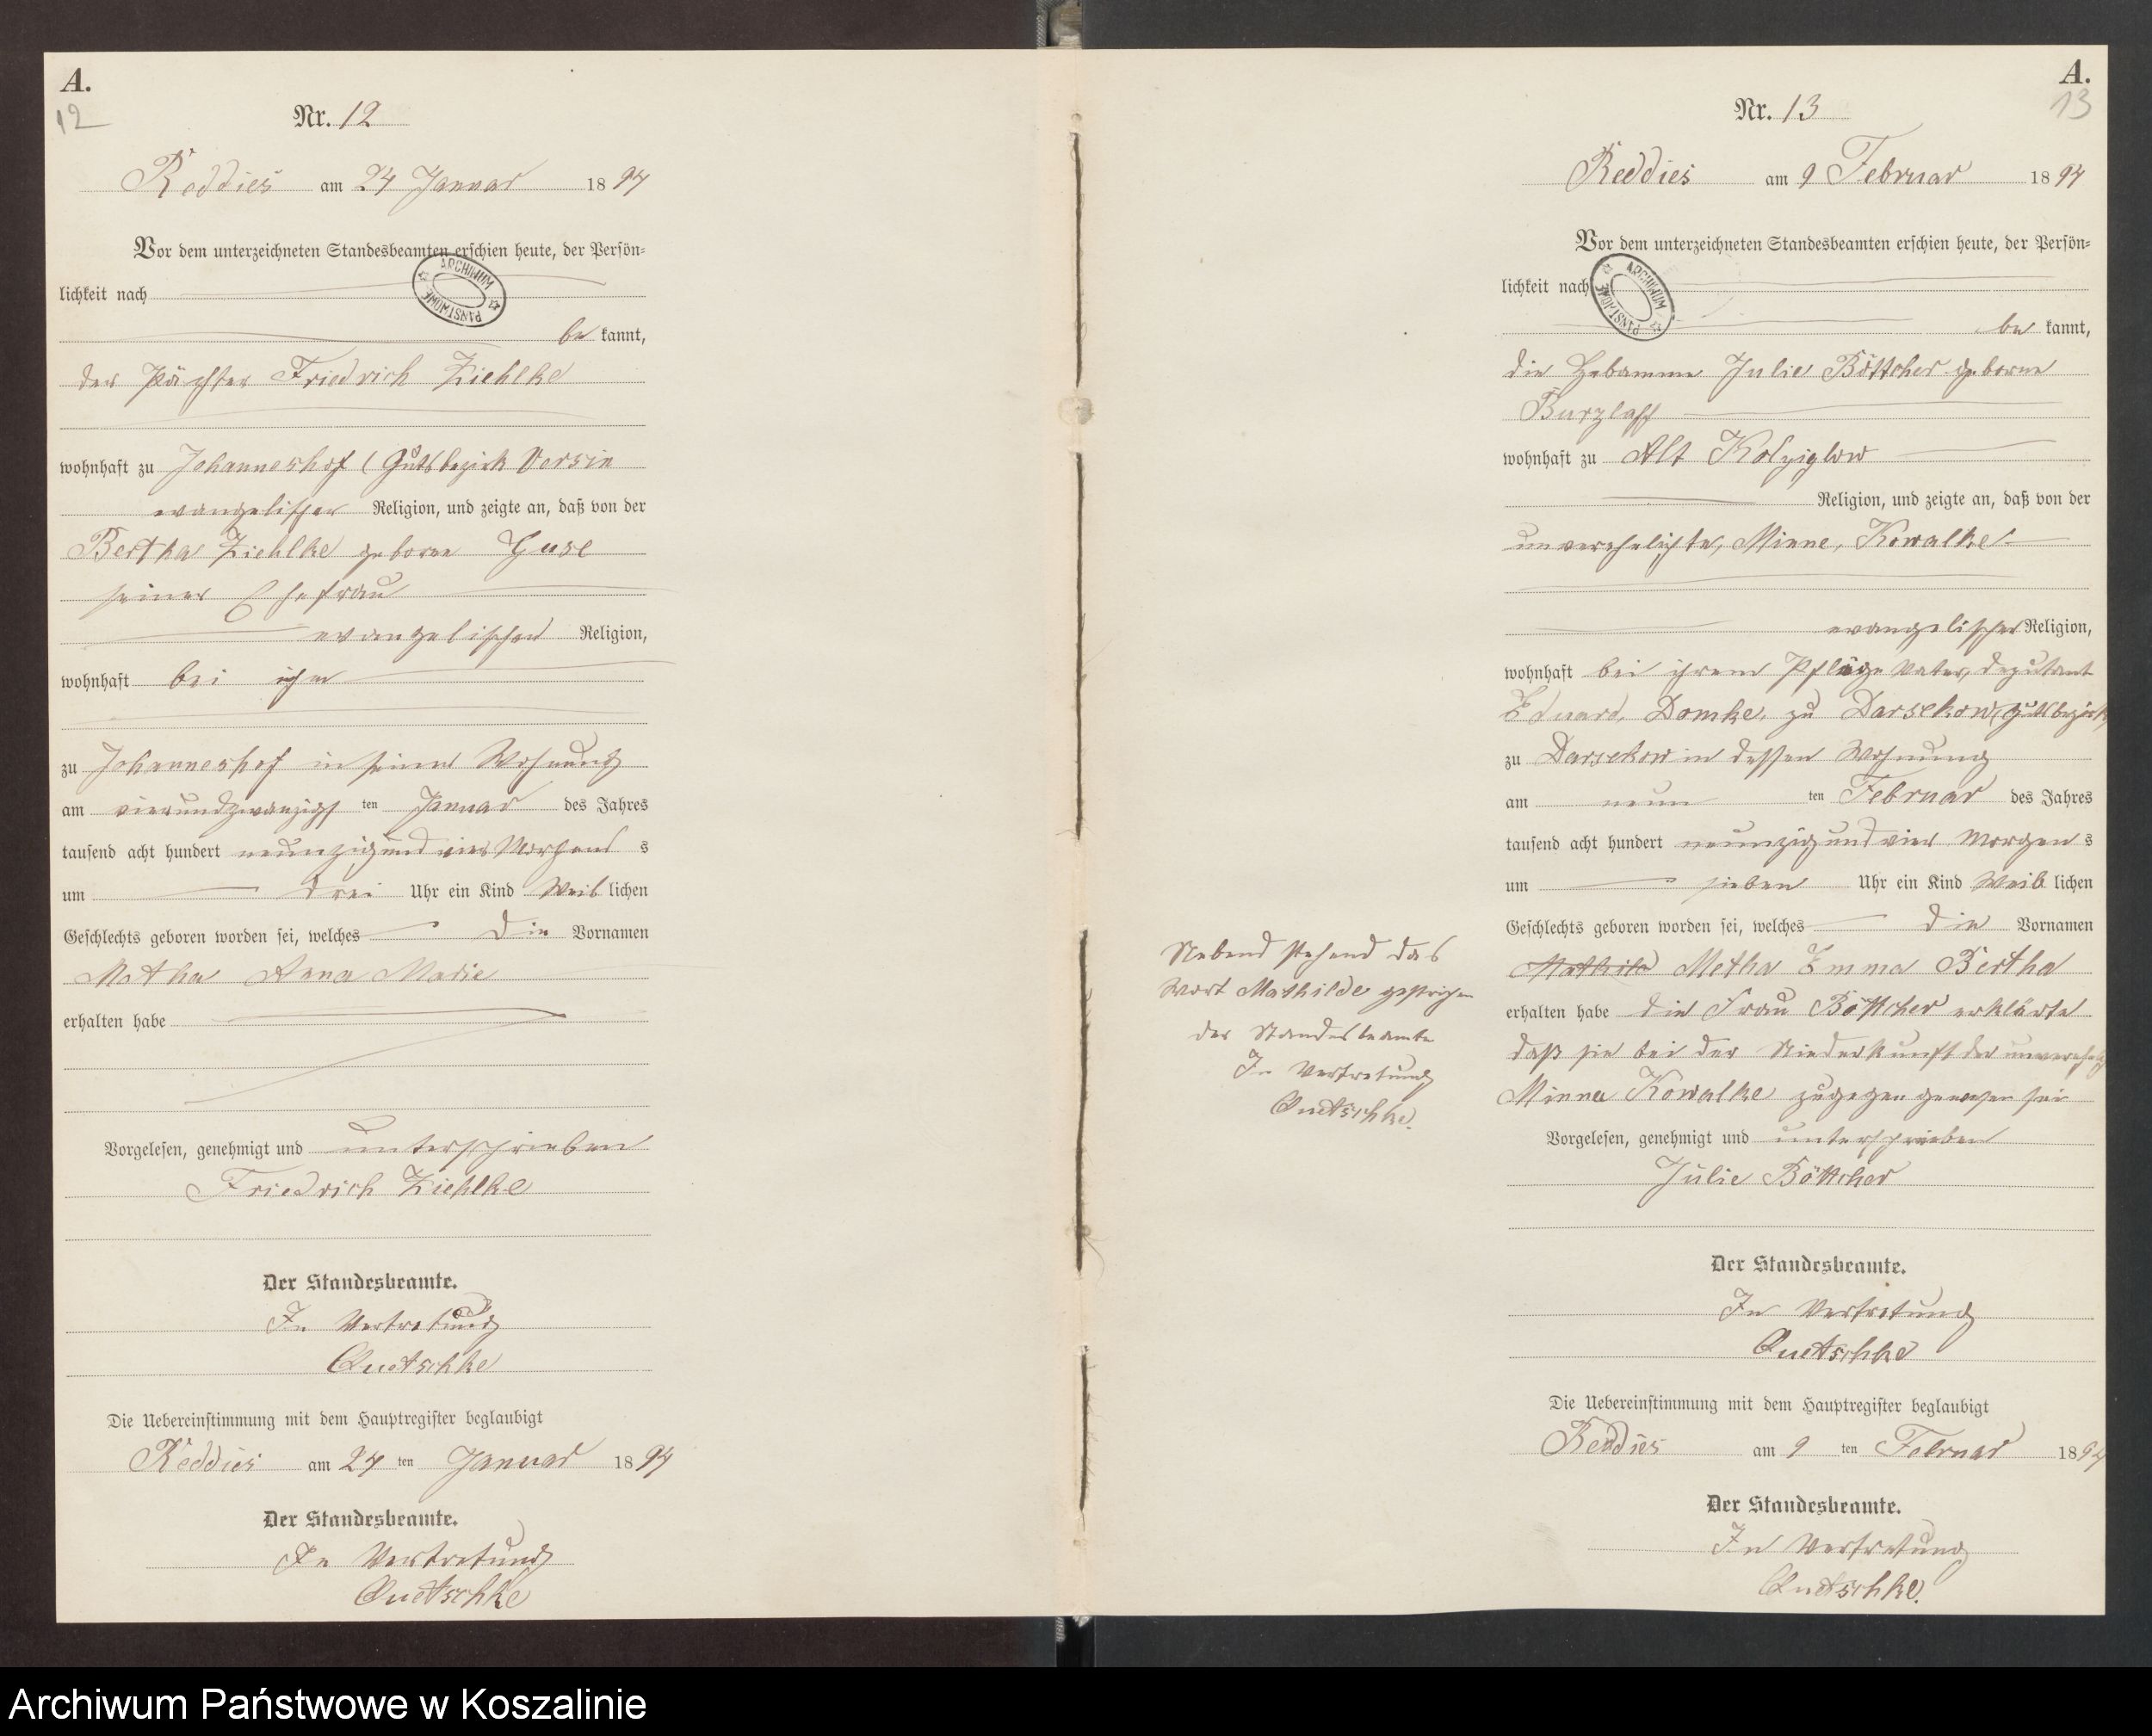 A.
12
Nr. 12
Reddies am 24 Januar 1894
Vor dem unterzeichneten Standesbeamten erschien heute, der Persön=
lichkeit nach
be kannt,
der Pächter Friedrich Ziehlke
wohnhaft zu Johanneshof (Gutsbezirk Versin
evangelischer Religion, und zeigte an, daß von der
Bertha Ziehlke geborne Guse
seiner Ehefrau
evangelischer Religion,
wohnhaft bei ihm
zu Johanneshof in seiner Wohnung
am vierundzwanzigs ten Januar des Jahres
tausend acht hundert neunzig und vier Morgens s
um drei Uhr ein Kind Weib lichen
Geschlechts geboren worden sei, welches die Vornamen
Metha Anna Marie
erhalten habe
Vorgelesen, genehmigt und unterschrieben
Friedrich Ziehlke
Der Standesbeamte.
In Vertretung
Quetschke
Die Uebereinstimmung mit dem Hauptregister beglaubigt
Reddies am 24 ten Januar 1894
Der Standesbeamte.
In Vertretung
Quetschke
A.
13
Nr. 13
Reddies am 9 Februar 1894
Vor dem unterzeichneten Standesbeamten erschien heute, der Persön=
lichkeit nach
be kannt,
die Hebamme Julie Böttcher geborne
Burzlaff
wohnhaft zu Alt Kolziglow
Religion, und zeigte an, daß von der
unverehelichte, Minne, Kowalke
evangelischer Religion,
wohnhaft bei ihrem Pflege Vater, deputant
Eduard, Domke, zu Darsekow, Gutsbezirk
zu Darsekow in dessen Wohnung
am neun ten Februar des Jahres
tausend acht hundert neunzig und vier Morgen s
um sieben Uhr ein Kind Weib lichen
Geschlechts geboren worden sei, welches die Vornamen
Mathild Metha Emma Bertha
erhalten habe die Frau Böttcher erklärte
daß sie bei der Niederkunft der unverehel
Minna Kowalke zugegen gewesen sei
Vorgelesen, genehmigt und unterschrieben
Julie Böttcher
Der Standesbeamte.
In Vertretung
Quetschke
Die Uebereinstimmung mit dem Hauptregister beglaubigt
Reddies am 9 ten Februar 1894
Der Standesbeamte.
In Vertretung
Quetschke.
Nebend stehend das
Wort Mathilde gestrichen
der Standesbeamte
In Vertretung
Quetschke.
ARCHIWUM PAŃSTWOWE
ARCHIWUM PAŃSTWOWE
Archiwum Państwowe w Koszalinie